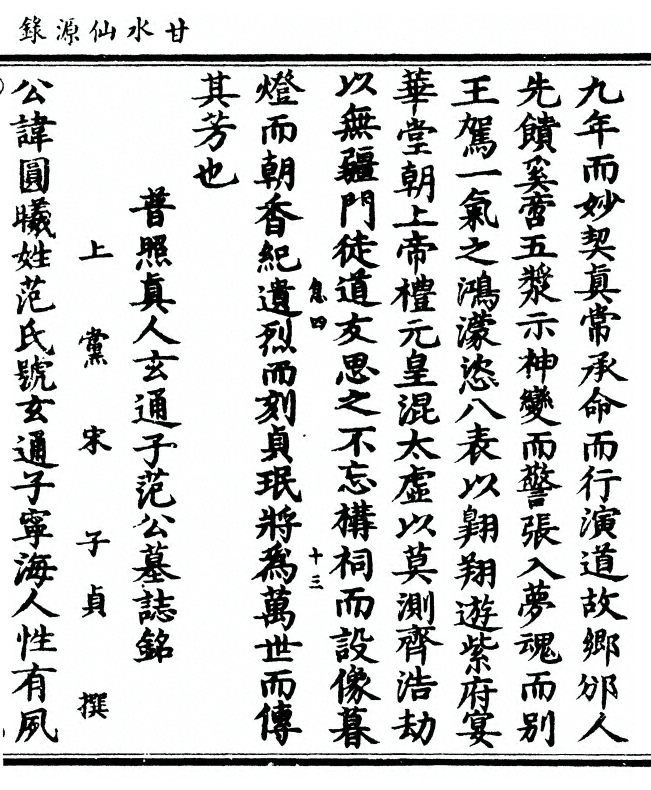 甘水仙源錄
九年而妙契真常承命而行演道故鄉邠人
先饋奚啻五漿示神變而警張入夢魂而別
王駕一氣之鴻濛恣八表以翺翔遊紫府宴
華堂朝上帝禮元皇混太虛以莫測齊浩劫
以無疆門徒道友思之不忘構祠而設像暮
息四
十三
燈而朝香紀遺烈而刻貞珉將為萬世而傳
其芳也
普照真人玄通子范公墓誌銘
上黨宋子貞撰
公諱圓曦姓范氏號玄通子寧海人性有夙